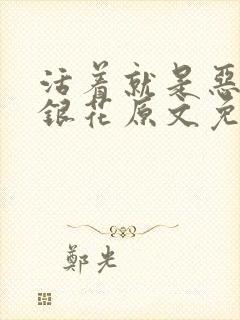 活着就是恶
银花原文免
鄭光